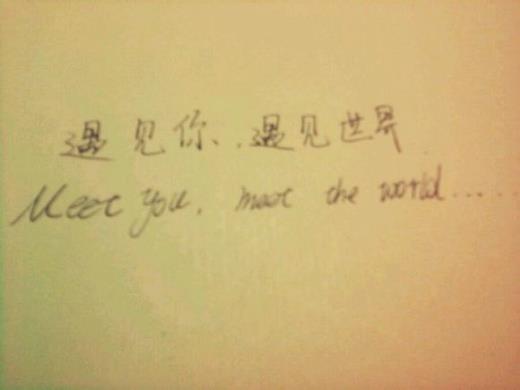 遇见你、遇见世界
Meet you, meet the world......